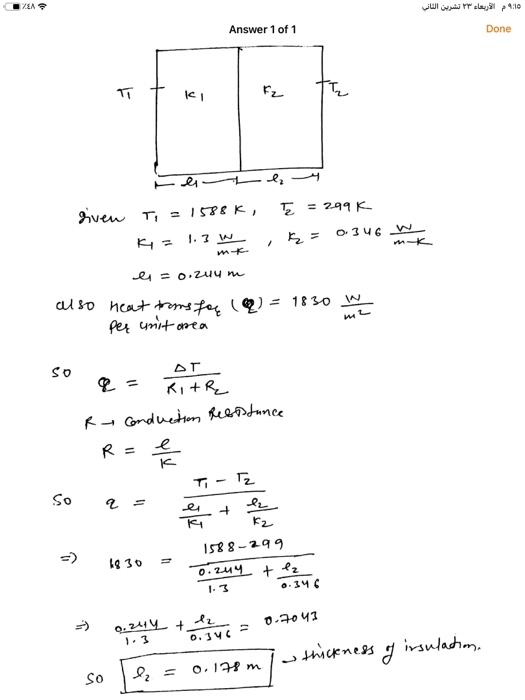 ٩:١٥ م الأربعاء ٢٣ تشرين الثاني
٪٤٨
Answer 1 of 1
Done
T1 K1 K2 T2
l1 l2
given T1 = 1588 K, T2 = 299 K
K1 = 1.3 W/m-K, K2 = 0.346 W/m-K
l1 = 0.244 m
also heat transfer (q) = 1830 W/m²
per unit area
so q = ΔT / R1 + R2
R → conduction Resistance
R = l / K
so q = T1 - T2 / l1/K1 + l2/K2
⇒ 1830 = 1588 - 299 / 0.244/1.3 + l2/0.346
⇒ 0.244/1.3 + l2/0.346 = 0.7043
so l2 = 0.178 m → thickness of insulation.